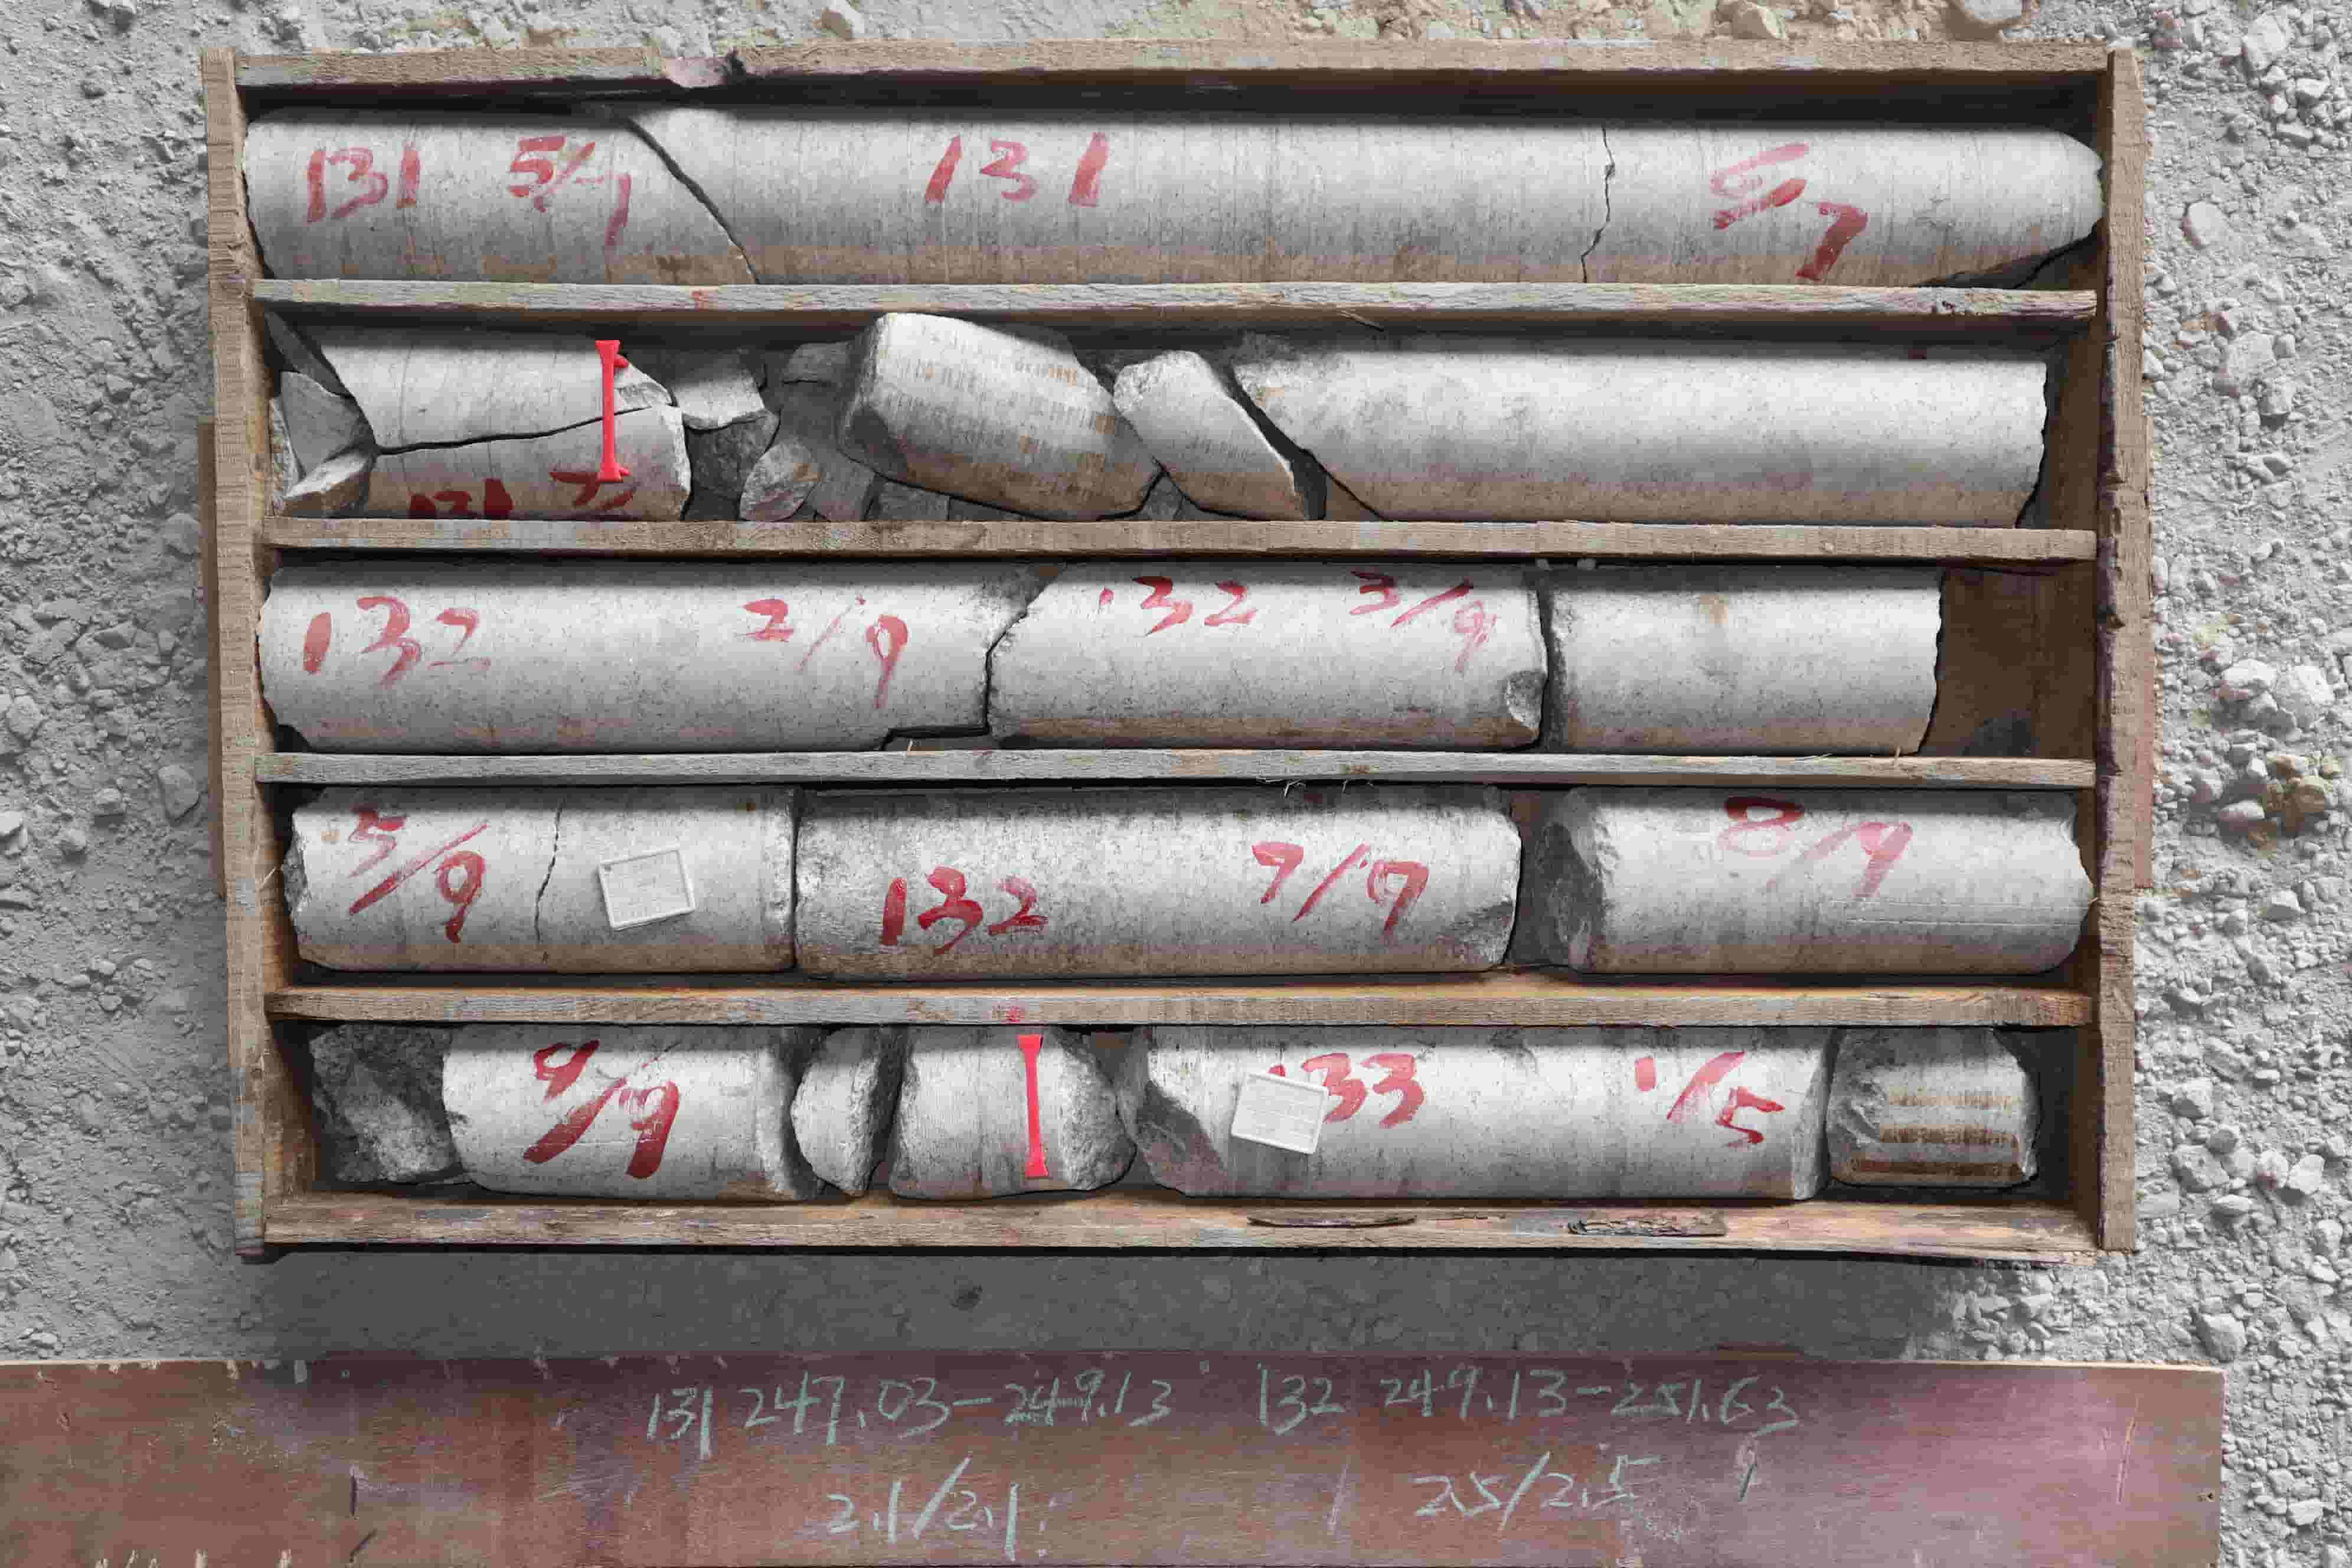 131 5/7 131 6/7
131 7/
132 2/9 132 3/9
5/9 132 7/9 8/9
9/9 133 1/5
131 247.03-249.13 132 249.13-251.63
2.1/2.1 2.5/2.5